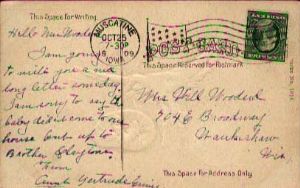 This Space for Writing.
MUSCATINE
OCT 25
7-30P
1909
IOWA
This Space Reserved for Postmark
Hello Mrs. Wooderd
I am going
to write you a real
long letter someday.
I am sorry to say the
baby did not come to our
house but up to
Brother Clayton's
From
Aunt Gertrude
Mrs Will Wooderd
704 E Broadway
Waukeshaw
Wis
This Space for Address Only.